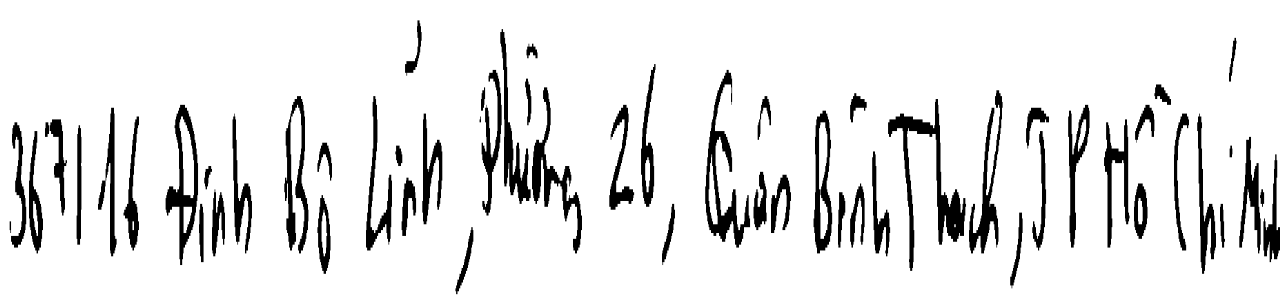 367/16 Đinh Bộ Lĩnh, Phường 26, Quận Bình Thạch, TP Hồ Chí Minh